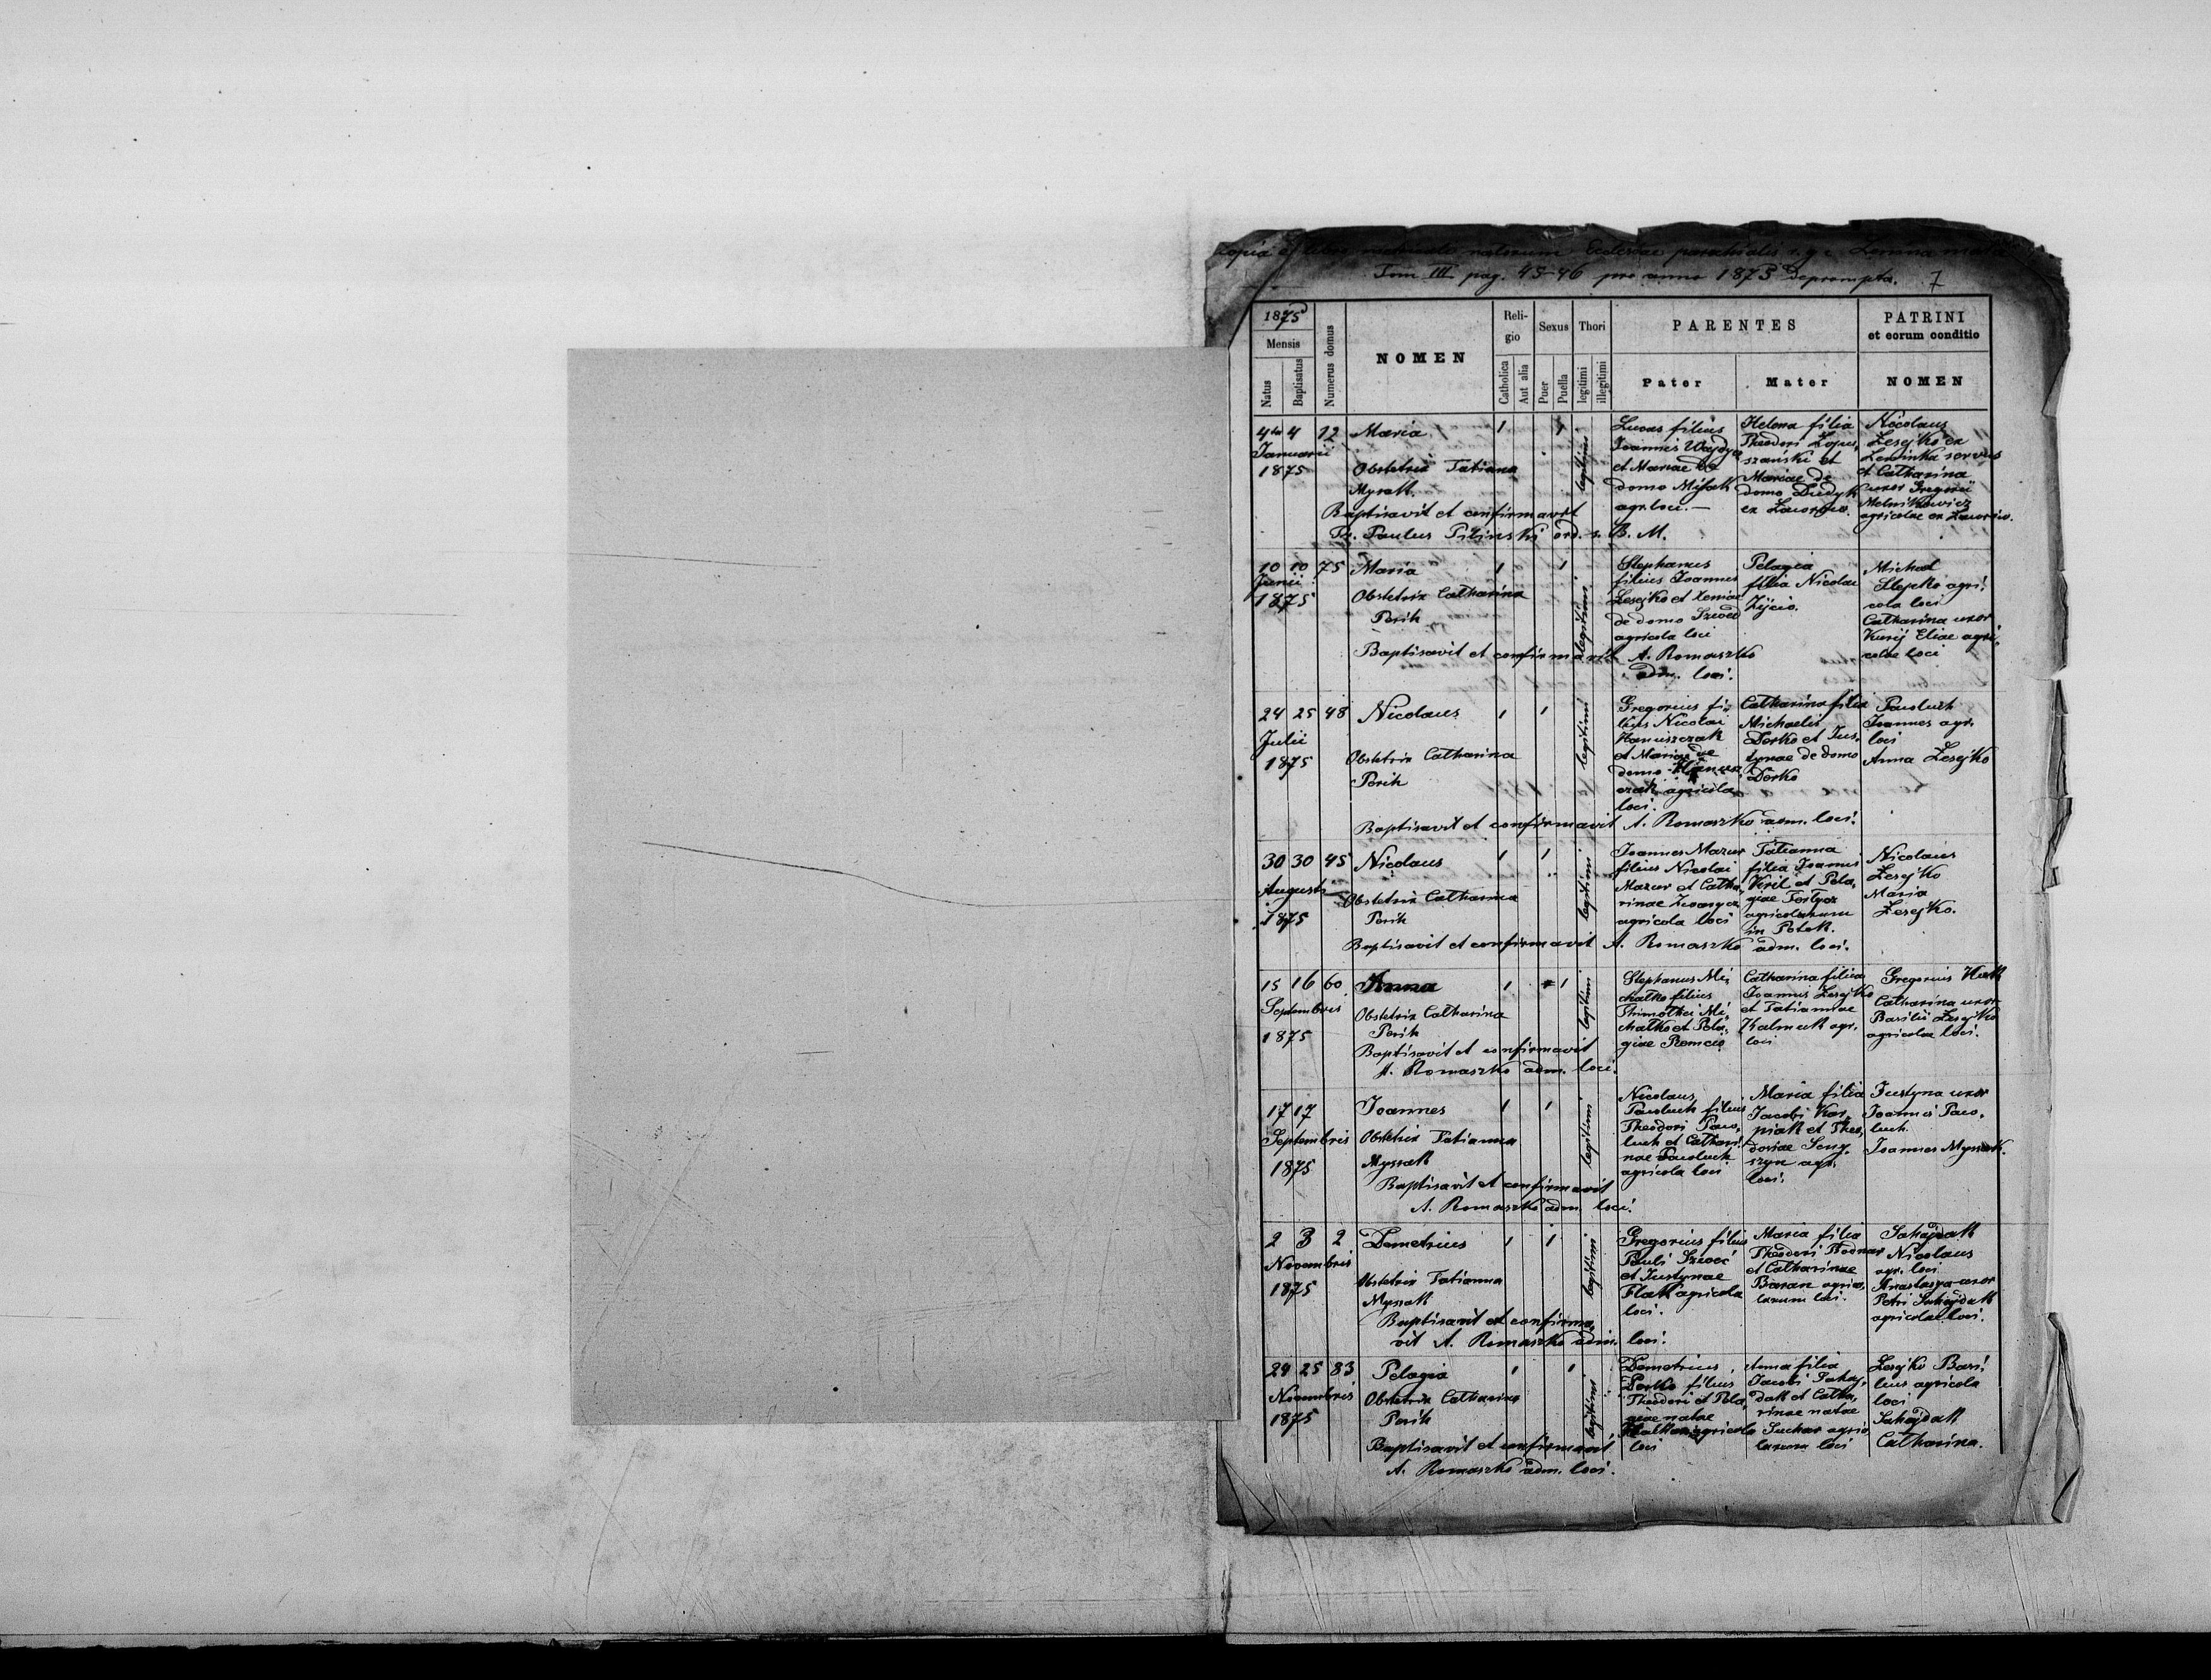 Copia ex libro metricali natorum Ecclesiae parochialis r. g. c. Lemna mała
Tom III pag. 45-46 pro anno 1875 deprompta. 7
1875
Mensis
Natus
Baptisatus
Numerus domus
NOMEN
Reli-
gio
Catholica
Aut alia
Sexus
Puer
Puella
Thori
legitimi
illegitimi
PARENTES
Pater
Mater
PATRINI
et eorum conditio
NOMEN
4ta 4 12 Maria 1 1
Januarii
1875
Obstetrix Tatiana
Myssak.
Baptisavit et confirmavit
Pr. Paulus Piliński ord. s. B. M.
legitimi
Lucas filius
Joannis Wajdyz
et Mariae de
domo Misak
agr. loci. —
Helena filia
Theodori Łopu,
szański et
Mariae de
domo Dudyk
ex Ławorów.
Nicolaus
Łesejko ex
Leninka servus
et Catharina
uxor Gregorii
Melnikowicz
agricolae ex Ławorów.
10 10 75 Maria 1 1
Junii
1875
Obstetrix Catharina
Perih
Baptisavit et confirmavit A. Romaszko
adm. loci.
legitimi
Stephanus
filius Joannes
Łesejko et Xeniae
de domo Szweć
agricola loci
Pelagia
filia Nicolai
Żyjcio.
Michael
Slepko agri,
cola loci
Catharina uxor
Kurij Eliae agri,
colae loci
24 25 48 Nicolaus 1 1
Julii
1875
Obstetrix Catharina
Perih
Baptisavit et confirmavit A. Romaszko adm. loci.
legitimi
Gregorius fi,
lius Nicolai
Hanuszczak
et Mariae de
domo Hanusz
czak agricola
loci.
Catharina filia
Michaelis
Derko et Jus,
tynae de domo
Derko
Pawluch
Joannes agr.
loci
Anna Łesejko
30 30 45 Nicolaus 1 1
Augusti
1875
Obstetrix Catharina
Perih
Baptisavit et confirmavit A. Romaszko adm. loci.
legitimi
Joannes Mazur
filius Nicolai
Mazur et Catha,
rinae
agricola loci
Tatianna
filia Joannis
Kril et Pela,
giae
agricolarum
in Potok.
Nicolaus
Łesejko
Maria
Łesejko.
15 16 60 Anna 1 1
Septembris
1875
Obstetrix Catharina
Perih
Baptisavit et confirmavit
A. Romaszko adm. loci.
legitimi
Stephanus Mi,
chalko filius
Thimothei Mi,
chalko et Pela,
giae Romcio
Catharina filia
Joannis Łesejko
et Tatiannae
Kalmuk agr.
loci
Gregorius Hak
Catharina uxor
Basilii Łesejko
agricolae loci.
17 17 Joannes 1 1
Septembris
1875
Obstetrix Tatianna
Myssak
Baptisavit et confirmavit
A. Romaszko adm. loci.
legitimi
Nicolaus
Pawluch filius
Theodori Paw,
luch et Cathari,
nae Pawluch
agricola loci
Maria filia
Jacobi Kar,
piak et Theo,
dosiae Seny,
szyn agr.
loci.
Justyna uxor
Joannis Paw,
luch.
Joannes Myssak.
2 3 2 Demetrius 1 1
Novembris
1875
Obstetrix Tatianna
Myssak
Baptisavit et confirma,
vit A. Romaszko adm. loci.
legitimi
Gregorius filius
Pauli Szweć
et Justynae
Flak agricola
loci.
Maria filia
Theodori Bodnar
et Catharinae
Baran agrico,
larum loci.
Sahajdak
Nicolaus
agr. loci
Anastasya uxor
Petri Sahajdak
agricolae loci.
24 25 83 Pelagia 1 1
Novembris
1875
Obstetrix Catharina
Perih
Baptisavit et confirmavit
A. Romaszko adm. loci.
legitimi
Demetrius
Derko filius
Theodori et Pela,
giae natae
agricola
loci
Anna filia
Jacobi Sahaj,
dak et Catha,
rinae natae
Suchar agrico,
larum loci
Łesejko Basi,
lius agricola
loci
Sahajdak
Catharina.